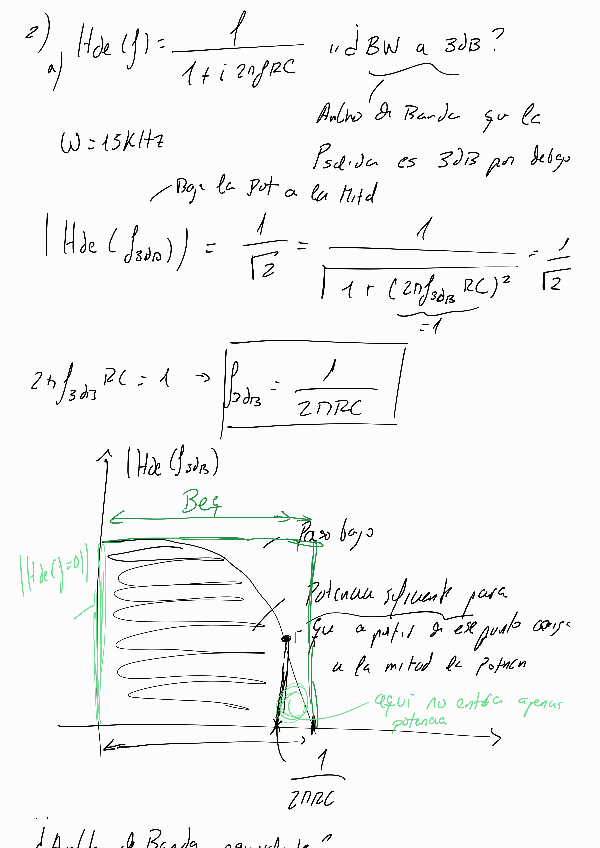 2)
a) Hde(f) = 1 / (1 + i 2πfRC) ¿BW a 3dB?
Ancho de Banda que la
W = 15KHz
Psalida es 3dB por debajo
Baja la Pot a la Mitad
|Hde(f3dB)| = 1/√2 = 1 / √(1 + (2πf3dB RC)²) = 1/√2
=1
2πf3dB RC = 1 → f3dB = 1 / 2πRC
|Hde(f3dB)
Beq
Paso bajo
|Hde(f=0)|
Potencia suficiente para
que a partir de ese punto caiga
a la mitad la poten
aquí no entra apenas
potencia
1 / 2πRC
¿Ancho de Banda equivalente?